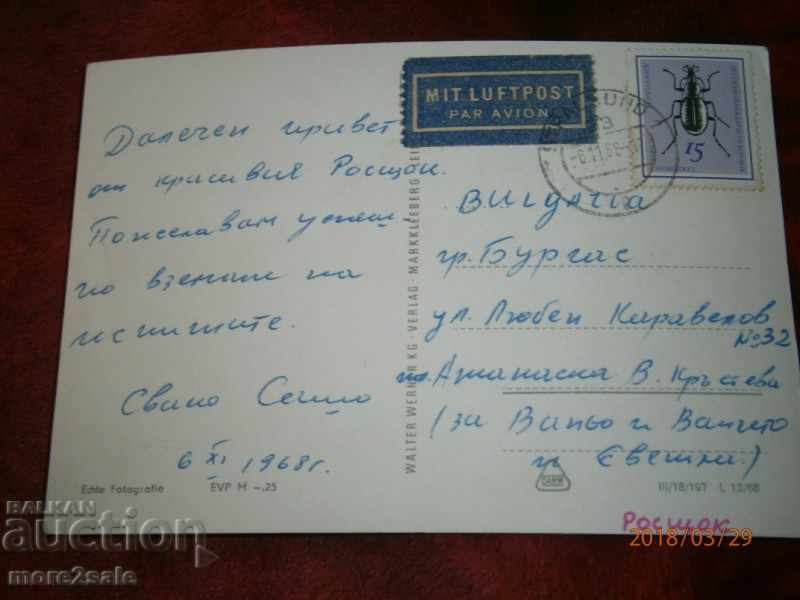 Далечен привет
от красивия Росщок.
Пожелавам успеш-
но вземане на
изпитите.
Свако Сашо
6 XI 1968 г.
Echte Fotografie
EVP M -.25
WALTER WERNER KG · VERLAG · MARKKLEEBERG
MIT LUFTPOST
PAR AVION
15
BULGARIA
гр. Бургас
ул. Любен Каравелов
№ 32
на. Атанаска В. Кръстева
(за Ваньо и Ванчето
и Евешки)
III/18/197 L 12/68
Росщок
2018/03/29
BALKAN
auction
more2sale